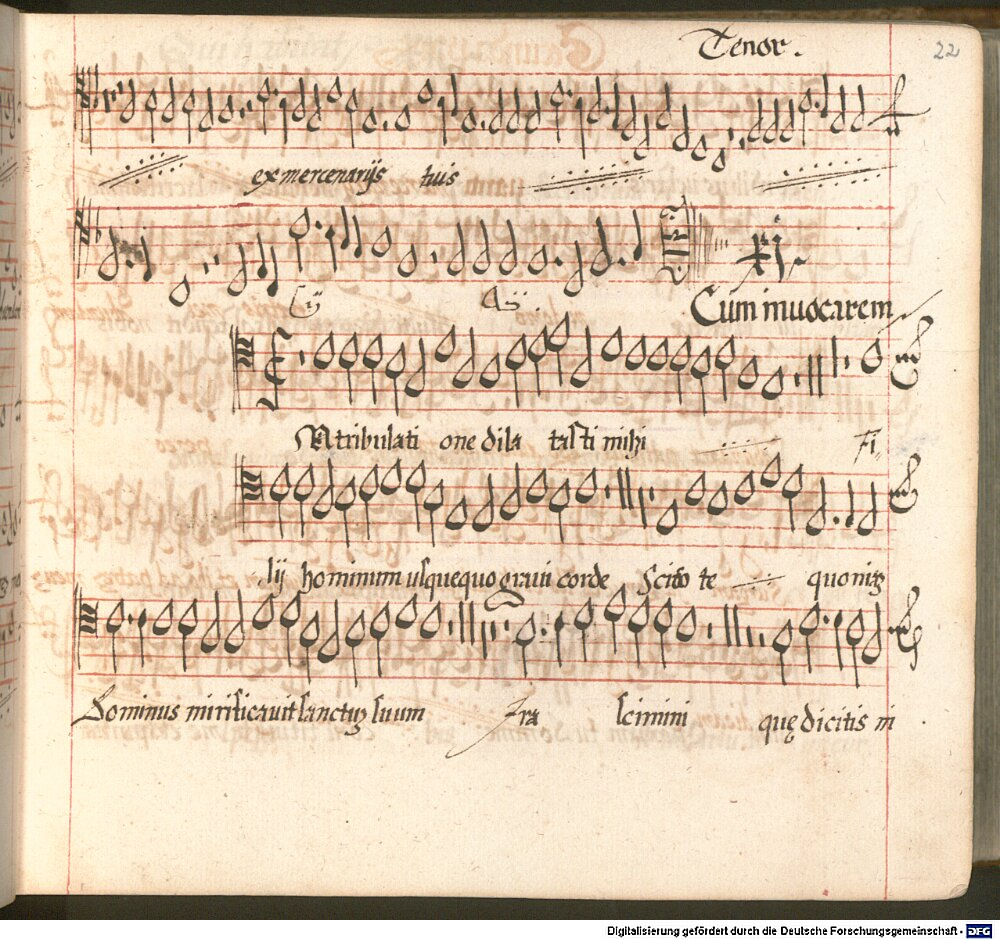 Tenor.
22
ex mercenarijs tuis
Cum inuocarem
N tribulati one dila tasti mihi
Fi,
lij hominum usquequo graui corde Scito te quoniam
Dominus mirificauit sanctum suum Ira scimini quę dicitis in
Digitalisierung gefördert durch die Deutsche Forschungsgemeinschaft - DFG